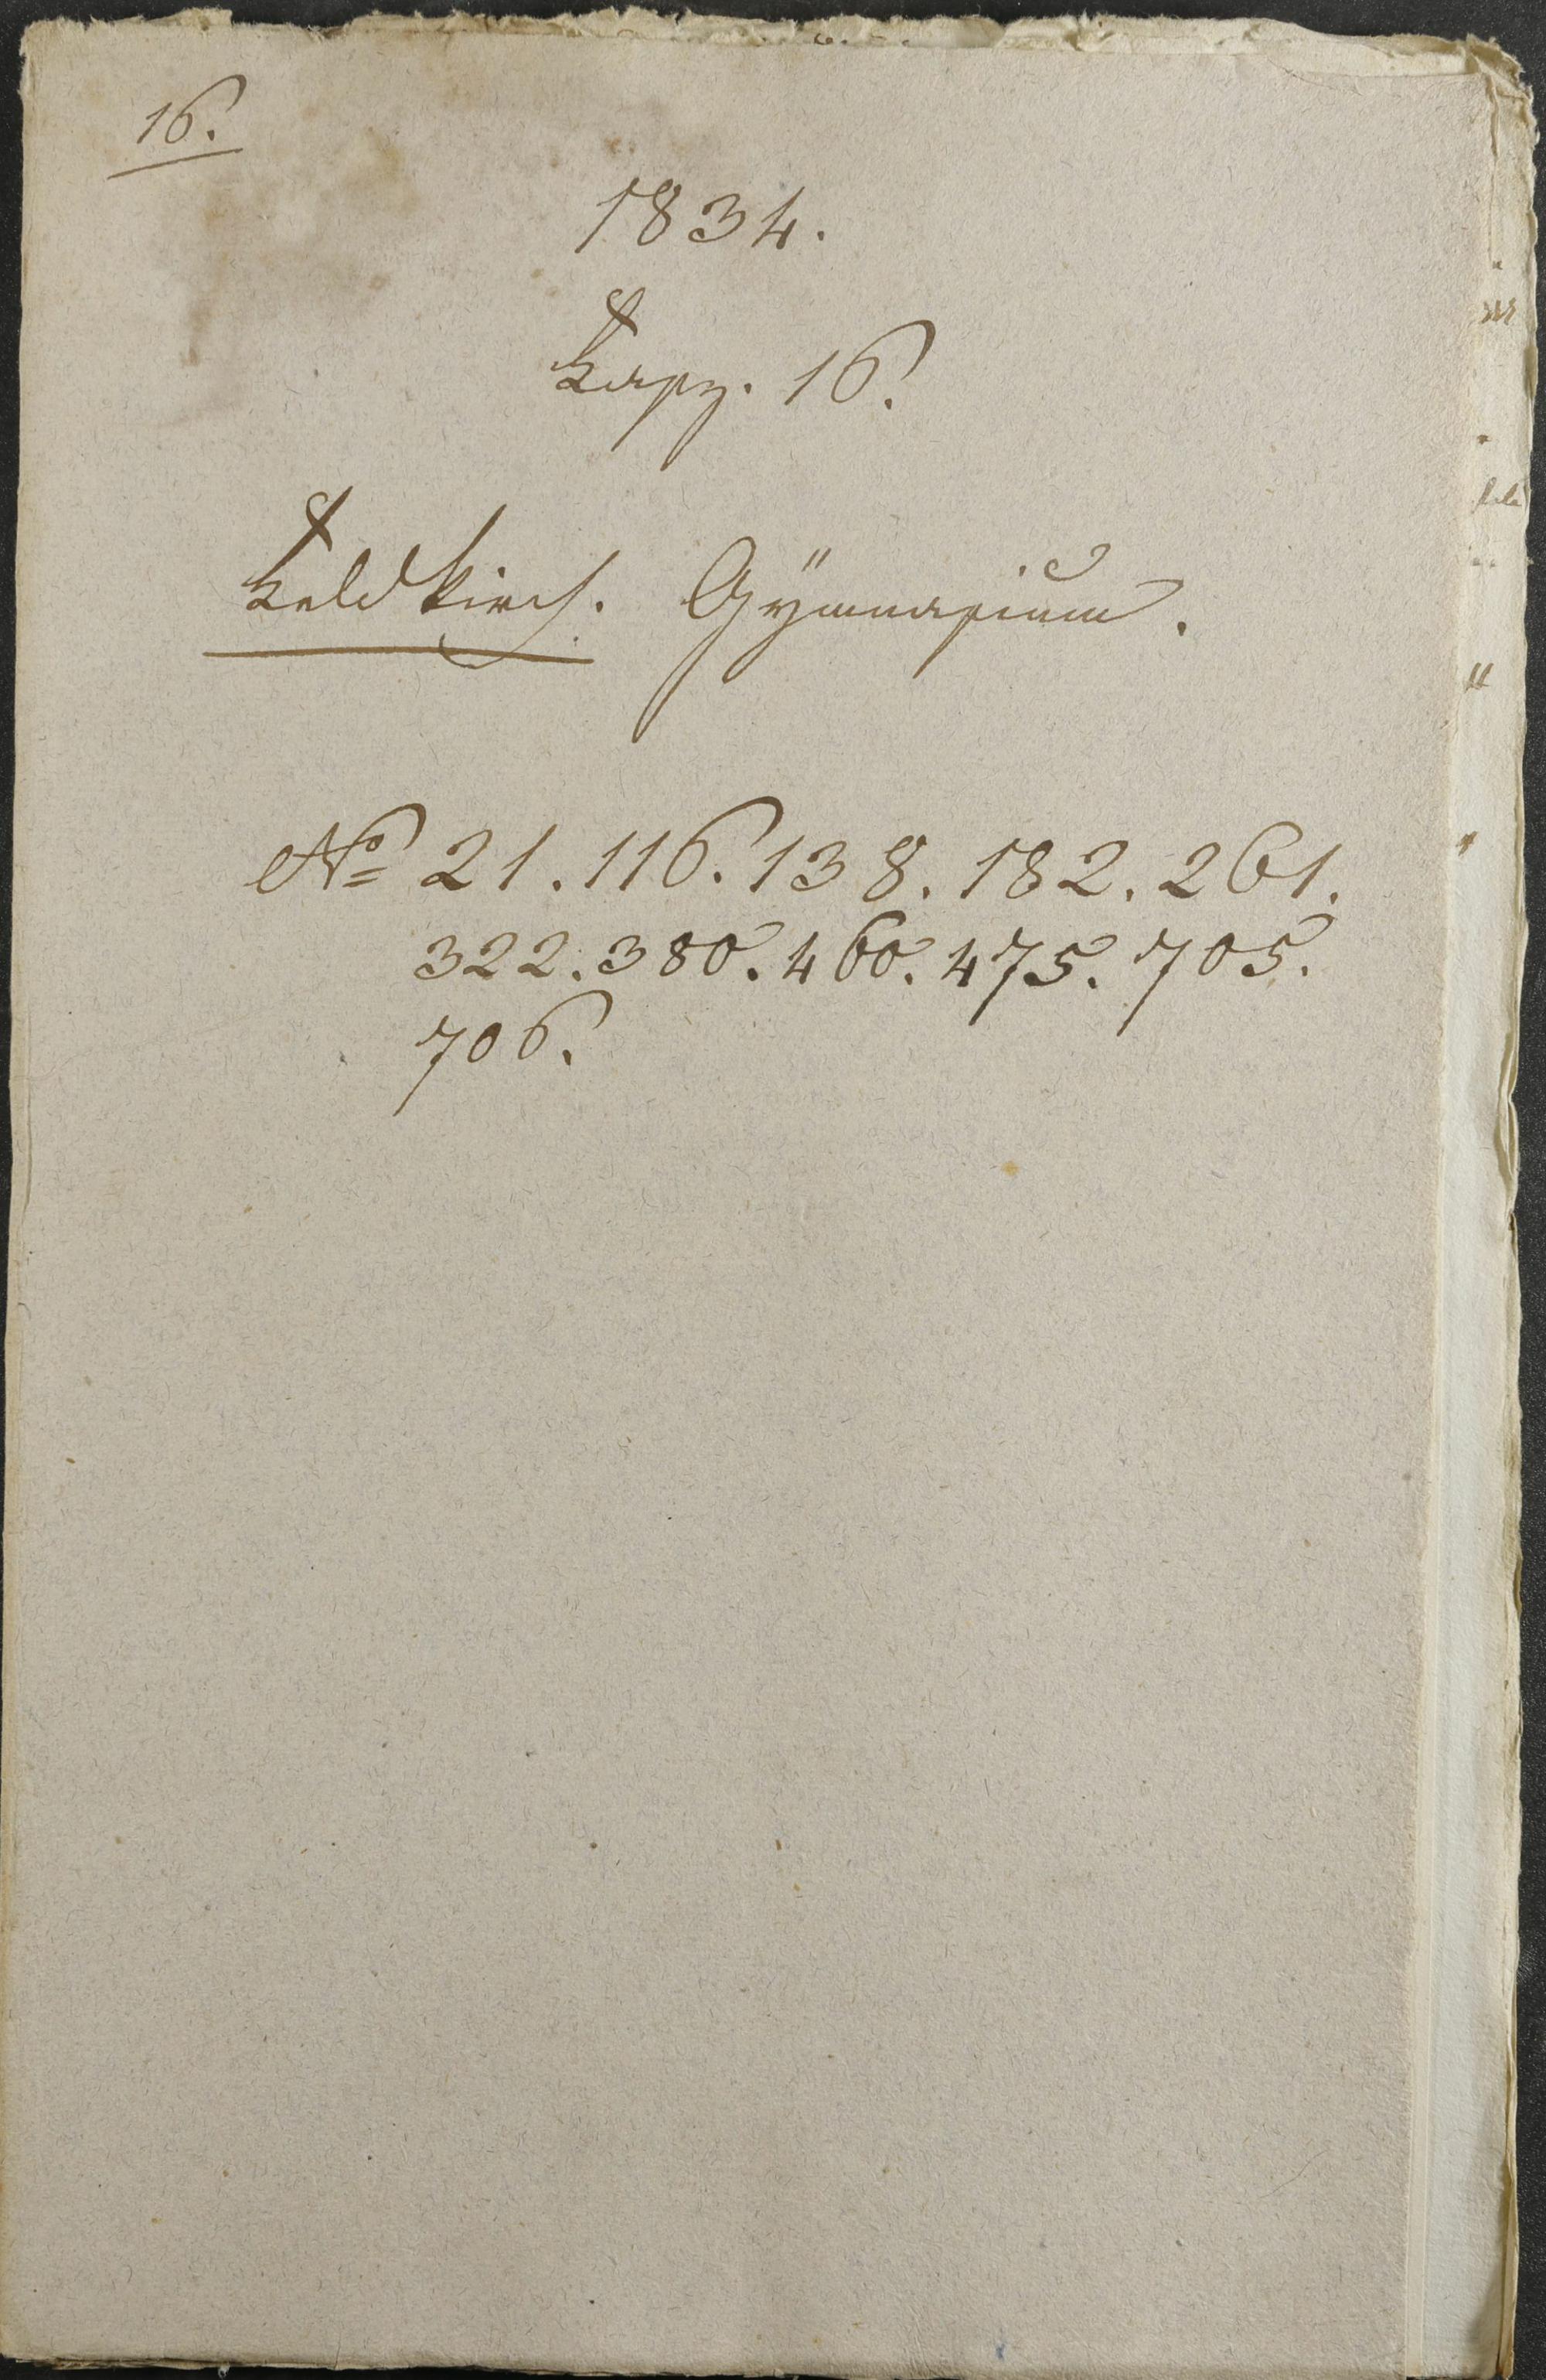 16.
1834.
Fasz. 16.
Feldkirch. Gÿmnasium.
No 21. 116. 138. 182. 261.
322. 380. 460. 475. 705.
706.